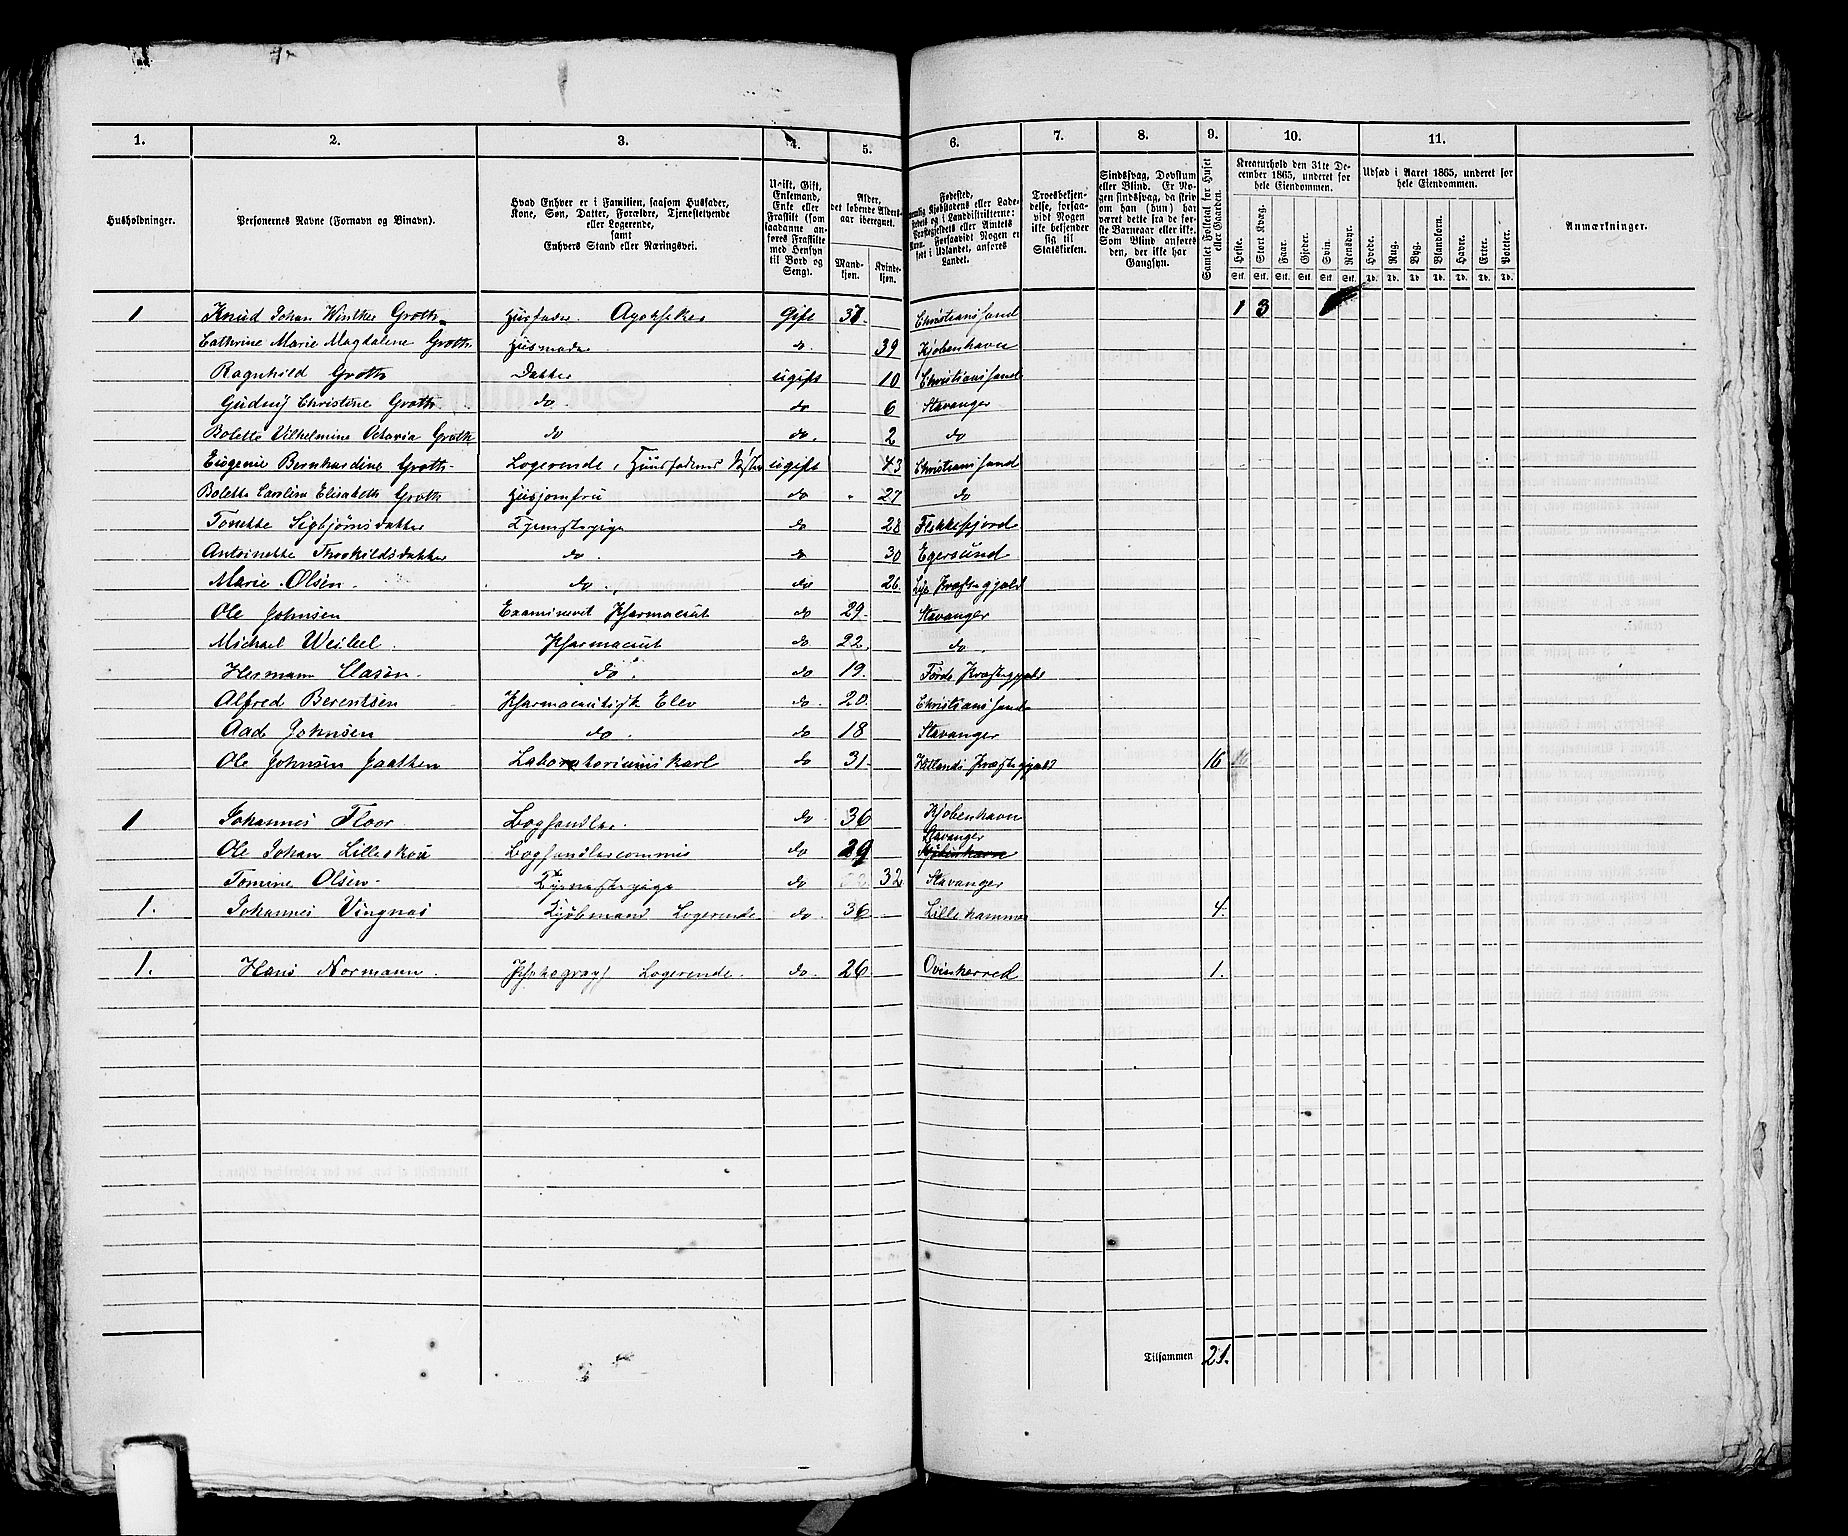 1. 2. 3. 4. 5. 6. 7. 8. 9. 10. 11.
Husholdninger.
Personernes Navne (Fornavn og Tilnavn).
Hvad Enhver er i Familien, saasom Husfader, Kone, Søn, Datter, Forældre, Tjenestetyende eller Logerende, samt Enhvers Stand eller Næringsvei.
Ugift, Gift, Enkemand, Enke eller Fraskilt (som saadanne anføres Fraskilte med Hensyn til Bord og Seng).
Alder, det løbende Aldersaar iberegnet.
Mandkjøn. Kvindekjøn.
Troesbekjendelse, forsaavidt Nogen ikke bekjender sig til Statskirken.
Sindssvag, Døvstum eller Blind. Er Nogen sindssvag, da skrives om han (hun) har været dette fra de første Barneaar eller ikke. Som Blind anføres den, der ikke har Gangsyn.
Samlet Folketal for Huset eller Gaarden.
Kreaturhold den 31te December 1865, underet for hele Eiendommen.
Heste. Stort Kvæg. Faar. Gjeder. Svin. Rensdyr.
Udsæd i Aaret 1865, underet for hele Eiendommen.
Hvede. Rug. Byg. Blandkorn. Havre. Erter. Poteter.
Stk. Stk. Stk. Stk. Stk. Stk. Td. Td. Td. Td. Td. Td. Td.
Anmærkninger.
1 Knud Johan Winther Groth Husfader Apotheker Gift 37. Christianssand 1 3
Cathrine Marie Magdalene Groth Husmoder do. 39 Kjøbenhavn
Ragnhild Groth Datter ugift 10 Christianssand
Gudny Christine Groth do. do 6 Stavanger
Bolette Vilhelmine Octavia Groth do do. 2 do
Eugenie Bernhardine Groth Logerende, Huusfaderens Søster ugift 43 Christianssand
Bolette Caroline Elisabeth Groth Husjomfru do 27 do
Tonette Sigbjørnsdatter Tjenestepige do 28 Flekkefjord
Antoinette Thorkildsdatter do. do 30 Egersund
Marie Olsen. do. do 26. Præstegjeld
Ole Johnsen Examineret Pharmaceut do 29. Stavanger
Michael Weibel. Pharmaceut do 22. do.
Hermann Clasen. do. do 19. Førde Præstegjeld
Alfred Berentsen Pharmaceutisk Elev do. 20. Christianssand
Aad Johnsen do. do 18 Stavanger
Ole Johnsen Jaatten Laboratoriumskarl do 31. Hetlands Præstegjeld 16
1 Johannes Floor Boghandler. do 36 Kjøbenhavn
Ole Johan Lilleskou Boghandlercommis do 29 Stavanger
Kjøbenhavn
Tomine Olsen Tjenestepige do 32 Stavanger
1. Johannes Vingnæs Kjøbmand Logerende do. 36 Lillehammer 4.
1. Hans Normann. Photograph Logerende. do. 26 Ovinkerred 1.
Tilsammen 21.